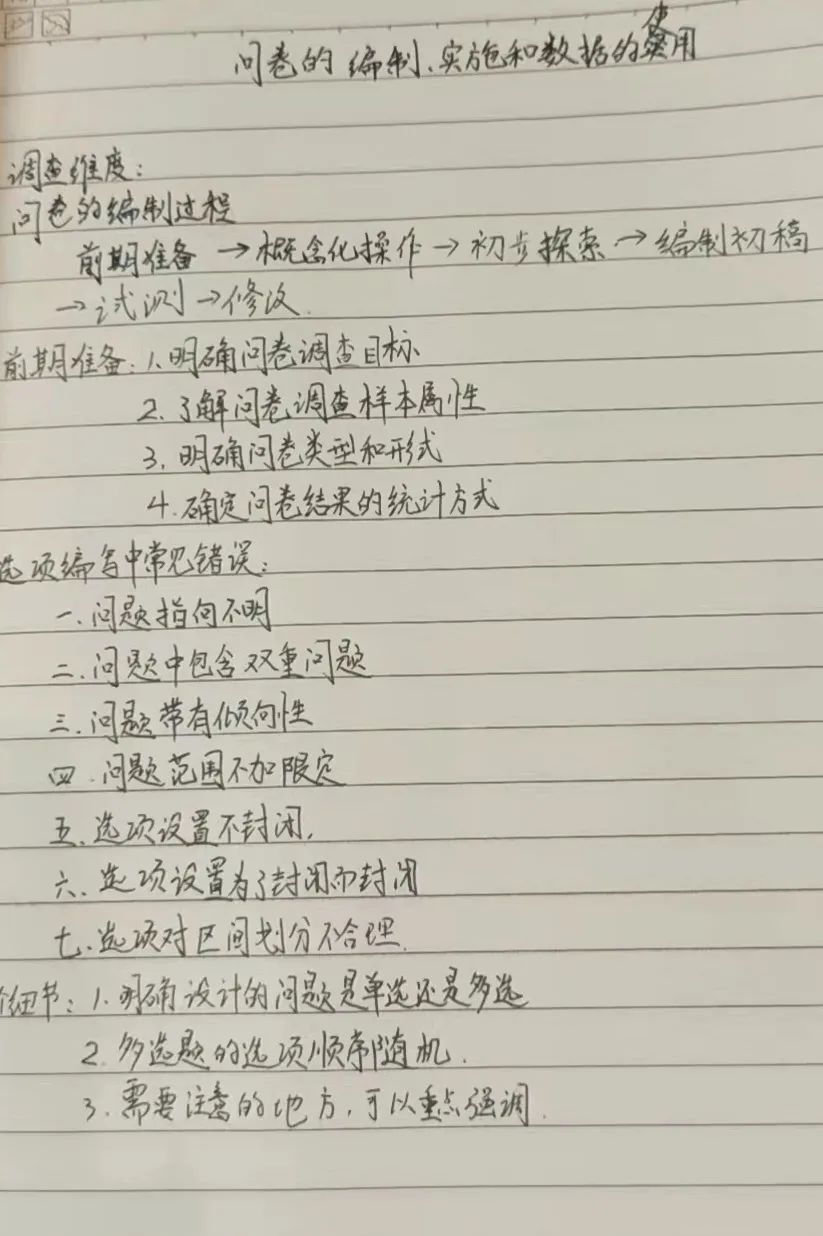 问卷的编制、实施和数据的使用
调查维度：
问卷的编制过程
前期准备→概念化操作→初步探索→编制初稿
→试测→修改.
前期准备：1.明确问卷调查目标
2.了解问卷调查样本属性
3.明确问卷类型和形式
4.确定问卷结果的统计方式
选项编写中常见错误：
一.问题指向不明
二.问题中包含双重问题
三.问题带有倾向性
四.问题范围不加限定
五.选项设置不封闭.
六.选项设置为了封闭而封闭
七.选项对区间划分不合理.
细节：1.明确设计的问题是单选还是多选
2.多选题的选项顺序随机.
3.需要注意的地方,可以重点强调.